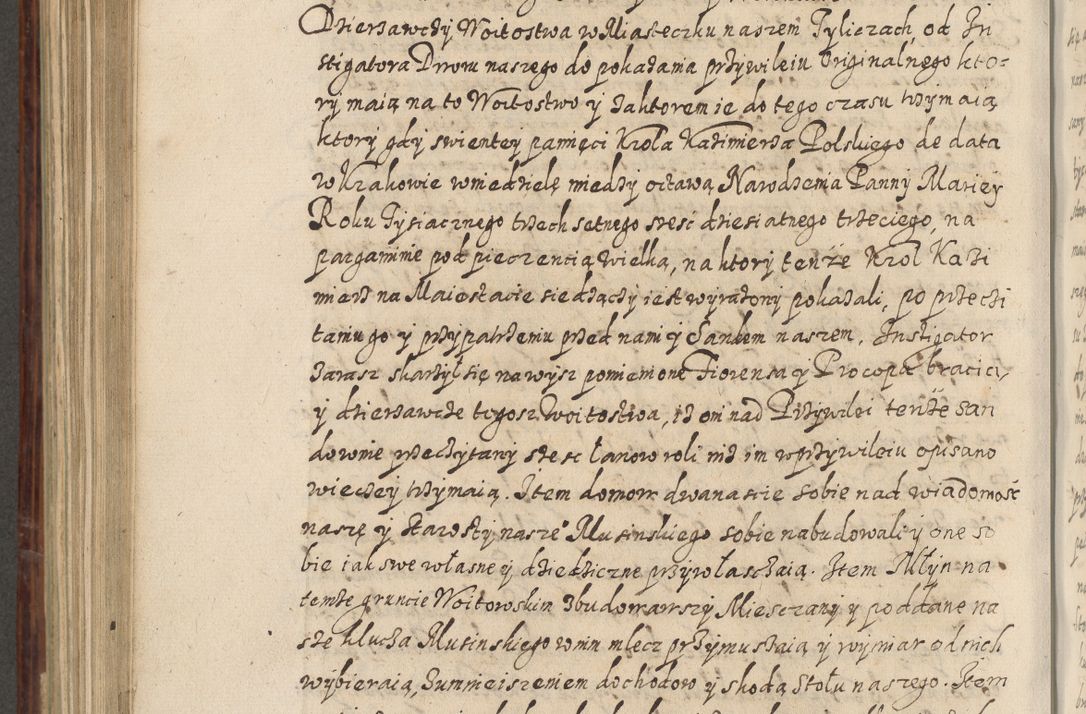 Dzierżawczÿ Woitostwa w Miasteczku naszem Tyliczach, od In
stigatora Dworu naszego do pokazania przÿwileiu Originalnego kto-
rÿ maią na to Woitostwo ÿ za ktorem ie do tego czasu trzÿmaią
ktorÿ gdÿ swienteÿ pamięci Krola Kazimierza Polskiego de data
w Krakowie w niedzielę miedzÿ octawą Narodzenia Pannÿ Marieÿ
Roku Tysiącznego trzech setnego szesc dziesiatnego trzeciego, na
pargaminie pod pieczencią wielką, na ktorÿ tenże Krol Kazi
mierz na Maiestacie siedzączÿ iest wÿrażonÿ pokazali, po przeczÿ
taniu go ÿ przÿpatrzeniu przed nami ÿ Sądem naszem, Instigator
zarasz skarżÿł się na wÿsz pomienione Fiorensa ÿ Procopa braciei
ÿ dzierzawcze tegosz Woitostwa, iż oni nad Przÿwilei tenże san
downie przeczÿtanÿ szesc łanow roli niż im w przÿwileiu opisano
wieczeÿ trzÿmaią. Item domow dwanascie sobie nad wiadomość
naszę ÿ Starostÿ nasze° Musinskiego sobie nabudowali ÿ one so
bie iak swe własne ÿ dziedziczne przÿwłaszczaią. Item Młÿn na
temże gruncie Woitowskim zbudowawszÿ Miesczanÿ ÿ poddane na
sze klucza Musinskiego w nim mlecz przÿmuszaią ÿ wÿmiar od nich
wÿbieraią, z umnieiszeniem dochodow ÿ skodą Stołu naszego. Item